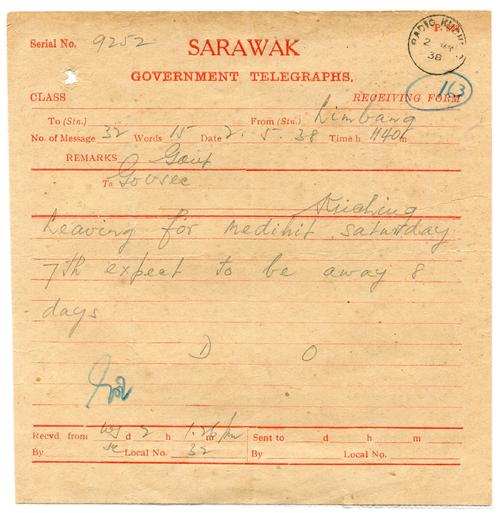 Serial No. 9252
P. W.
SARAWAK
GOVERNMENT TELEGRAPHS.
RADIO KUCHING
2 MY
38
163
CLASS RECEIVING FORM
To (Stn.) From (Stn.) Limbang
No. of Message 32 Words 15 Date 2. 5. 38 Time h 1140 m
REMARKS Govt
To Govsec
Kuching
Leaving for Medihit Saturday
7th expect to be away 8
days
D O
Recvd. from d 2 h 1.26 pm m Sent to d h m
By Local No. 32 By Local No.